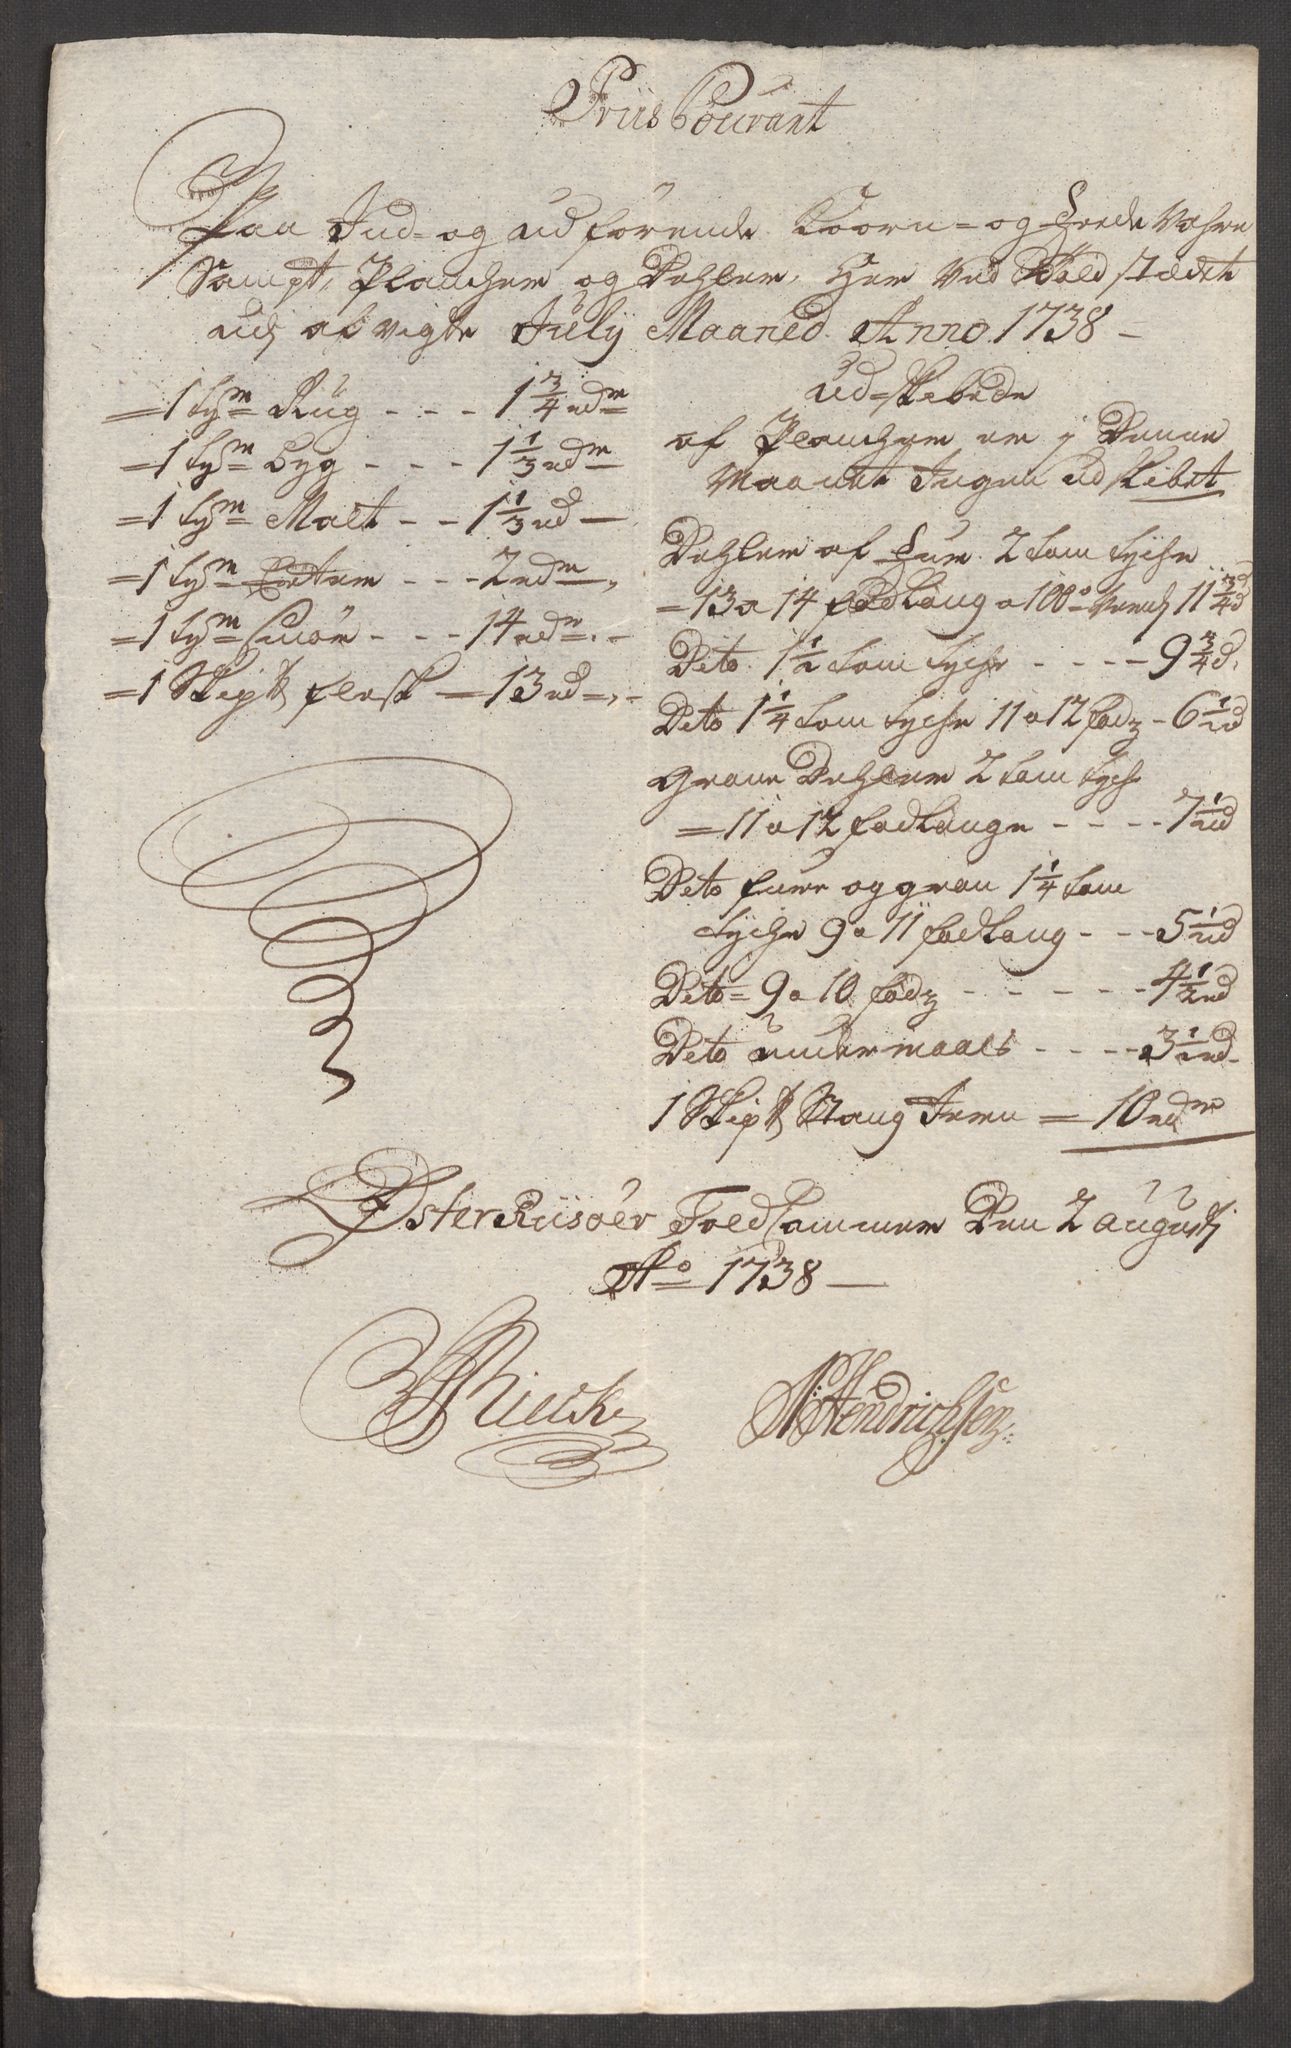 Priis Courant
Paa Ind- og udförende Koorn- og Fede Vahre
Sampt, Plancher og Dehler, Her Ved Told stædet
udj afvigte Julij Maaned. Anno 1738 –
= 1 Tøn Rüg - - - 1 3/4 rdr
= 1 Tøn byg - - - 1 1/3 rdr
= 1 Tøn Malt - - 1 1/3 rd –
= 1 Tøn Erter - - - 2 rdr
= 1 Tøn Smør - - - 14 rdr
= 1 Skip lb flesk – 13 rd
Ud-skibede
af Plancher er j Denne
Maanet Ingen udskibet
Dehler af Fure 2 tom tyche
= 13 a 14 fod lang a 100 Værdj 11 3/4 rd
Dito 1 1/2 tom tyche - - - - 9 3/4 rd
Dito 1 1/4 tom tyche 11 a 12 fodz - 6 1/2 rd
Grane Dehler 2 tom tych
= 11 a 12 fod lange - - - - 7 1/2 rd
Dito fure og gran 1 1/4 tom
tyche 9 a 11 fod lang - - - 5 1/2 rd
Dito = 9 a 10 fodz - - - - - - 4 1/2 rd
Dito undermaals - - - - 3 1/2 rd
1 Skip lb Stang Jern = 10 rdr
Øster Riisöer Told Cammer Den 2 augustj
Ao 1738 –
Rieck
N Hendrichsen